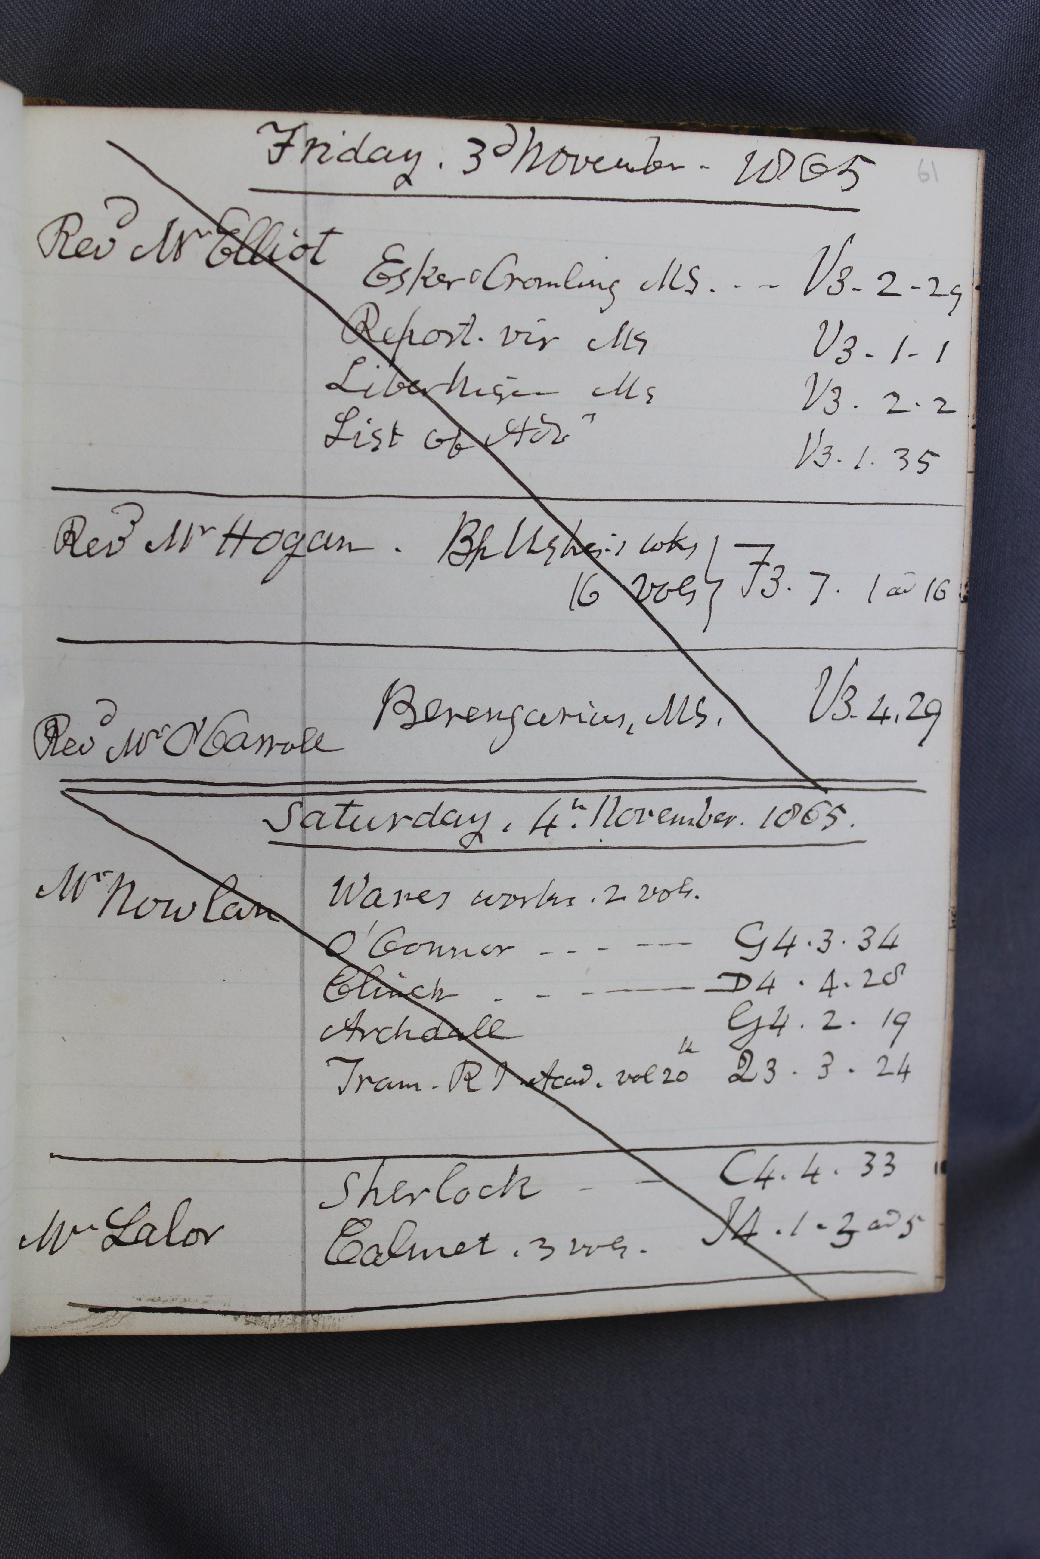 61
Friday. 3d November - 1865
Revd Mr Elliot
Esker & Cromling MS. - - V3-2-29
Report. vir MS V3-1-1
Liber Niger MS V3. 2.2
List of V3.1.35
Revd Mr Hogan. Bp Ushers wks
16 vols } F3. 7. 1 ad 16
Berengarius, MS. V3.4.29
Revd Mr O'Carroll
Saturday, 4th. November. 1865.
Mr Nowlan Wares works. 2 vols.
O'Connor - - - — G4.3.34
Clinch . - - — D4.4.28
Archdall G4.2.19
Tran. R I Acad. vol 20th Q3.3.24
Sherlock - — C4.4.33
Mr Lalor
Calmet. 3 vols. J4.1-3 ad 5